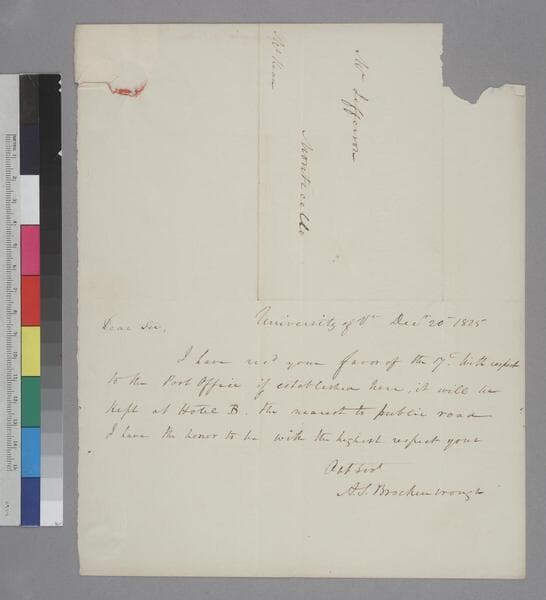 Mr Jefferson
Monticello
University of Va Decr 20th 1825
Dear Sir,
I have recd your favor of the 17th With respect
to the Post Office if established here, it will be
kept at Hotel B. the nearest to public road
I have the honor to be with the highest respect your
Obt Sert
A. S. Brockenbrough